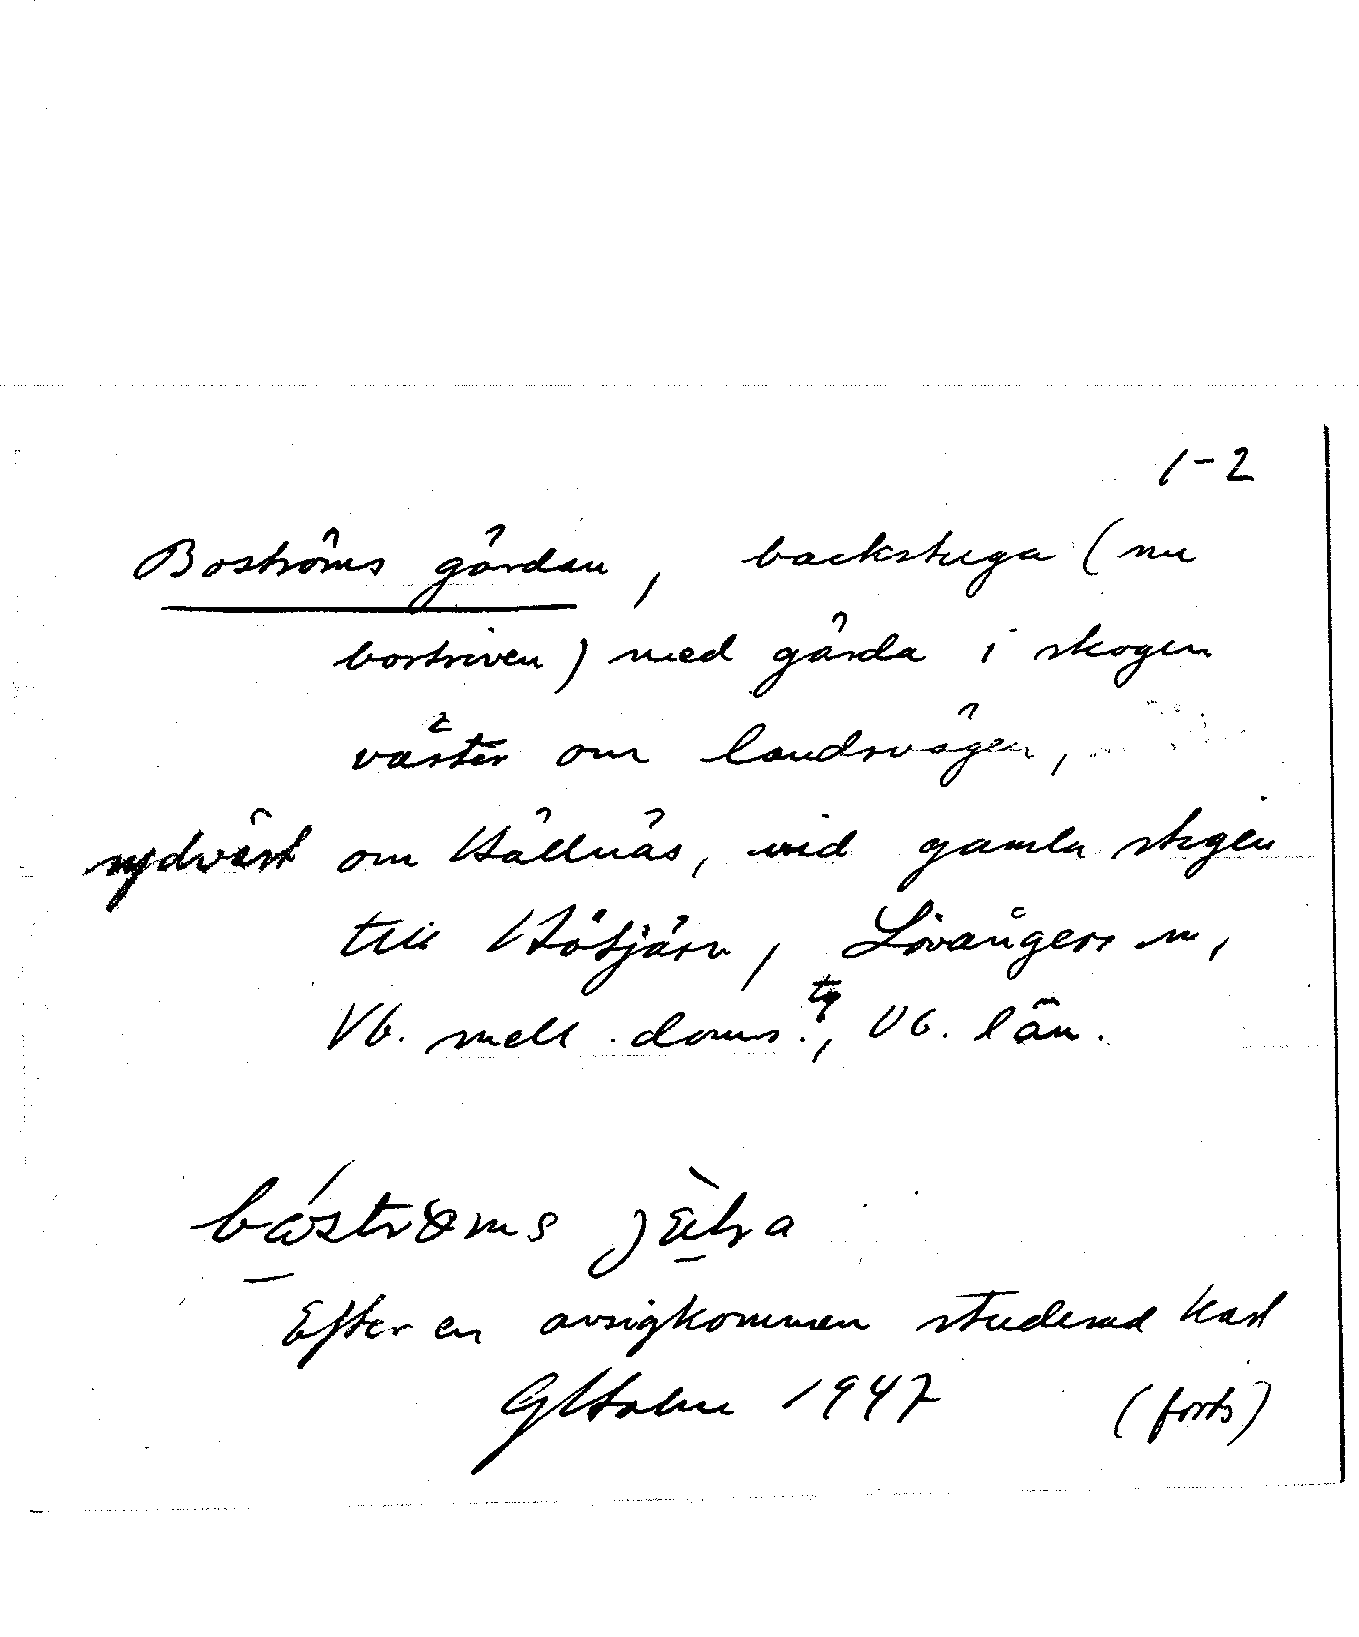 1-2
Boströms gärdan, backstuga (nu
bortriven) med gärda i skogen
väster om landsvägen,
sydväst om Hällnäs, vid gamla stigen
till Hötjärn, Lövångers sn,
Vb. mell. doms.tg, Vb. län.
Efter en avsigkommen studerad karl
GHolm 1947 (forts)